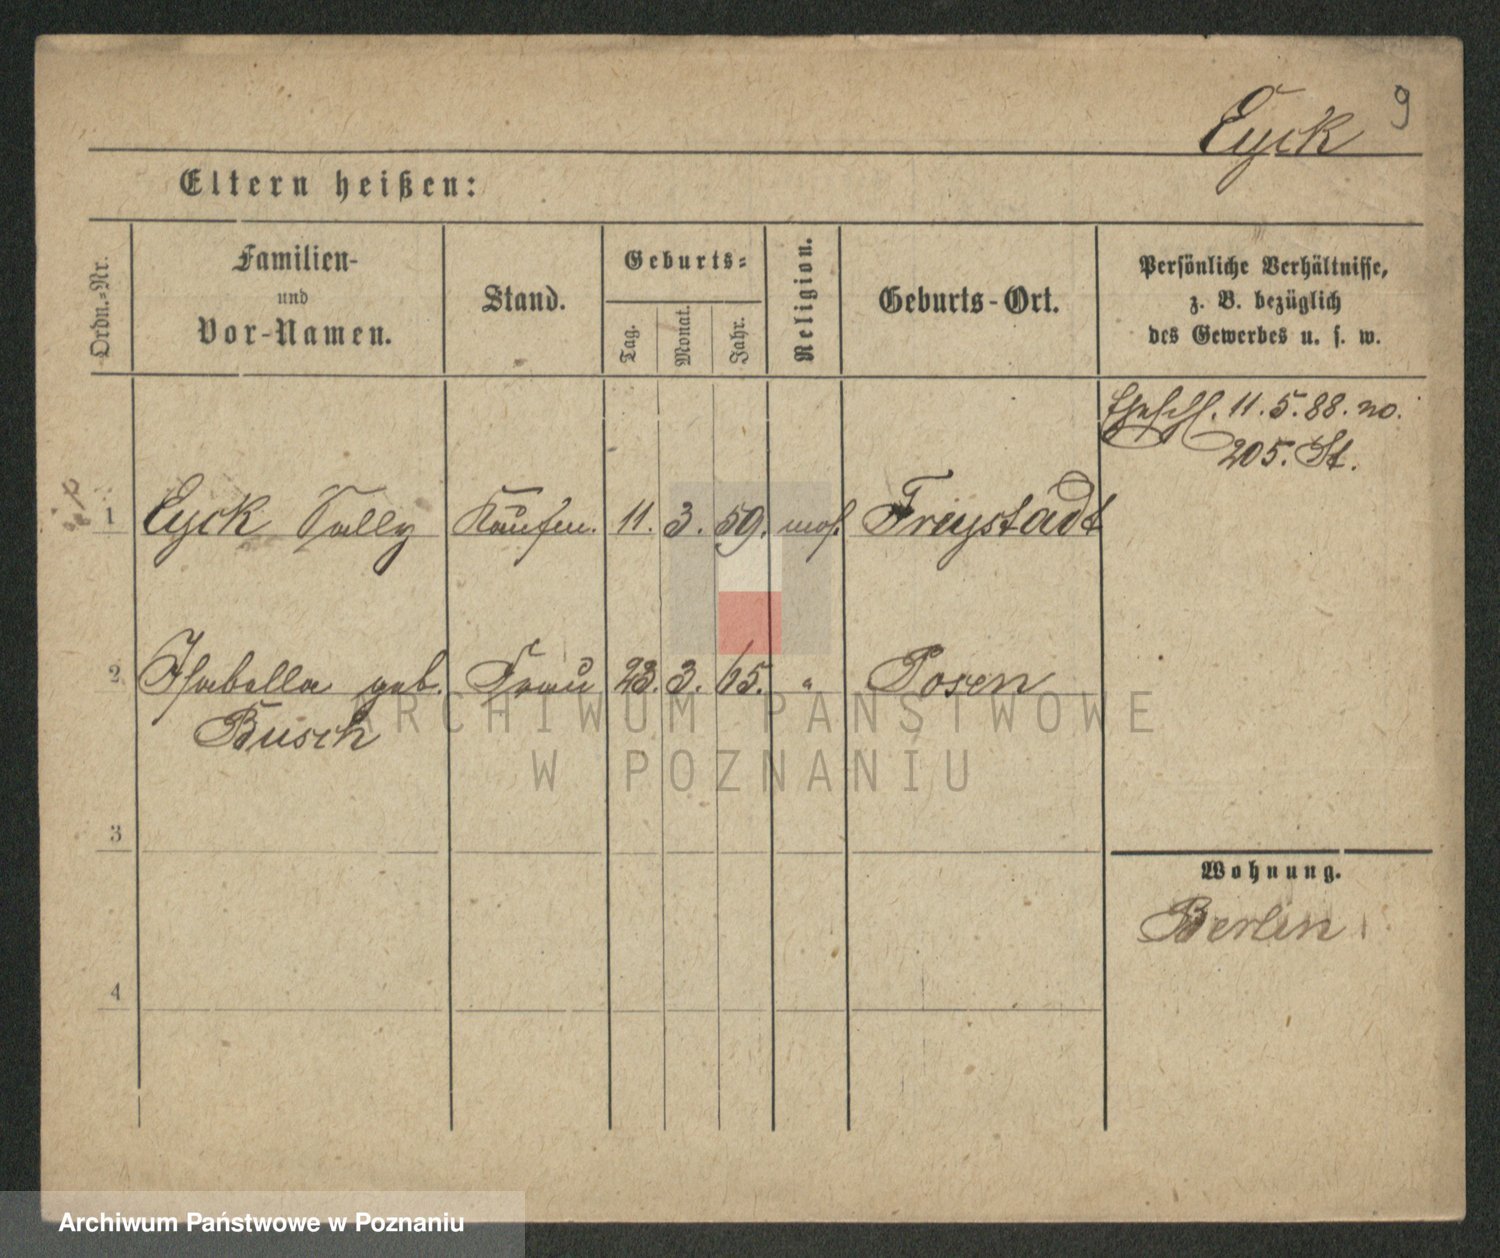 Eyck 9
Eltern heißen:
Ordn.-Nr.
Familien-
und
Vor-Namen.
Stand.
Geburts-
Tag.
Monat.
Jahr.
Religion.
Geburts-Ort.
Persönliche Verhältnisse,
z. B. bezüglich
des Gewerbes u. s. w.
Ehesch. 11. 5. 88. no.
205. St.
1 Eyck Sally Kaufm. 11. 3. 59. mos. Freystadt
2 Isabella geb. Frau 23. 3. 65. " Posen
Busch
ARCHIWUM PAŃSTWOWE
W POZNANIU
3
Wohnung.
Berlin
4
Archiwum Państwowe w Poznaniu